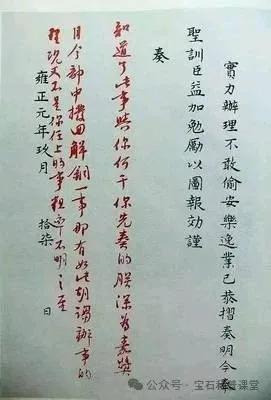 實力辦理不敢偷安樂逸業已恭摺奏明今奉
聖訓臣益加勉勵以圖報効謹
奏
知道了此事與你何干你先奏的朕深為嘉獎
目今部中撥回解銅一事那有如此胡謅辦事的
理況又不是你任上的事不明之至
雍正元年玖月 拾柒 日
公众号 · 宝石科普课堂